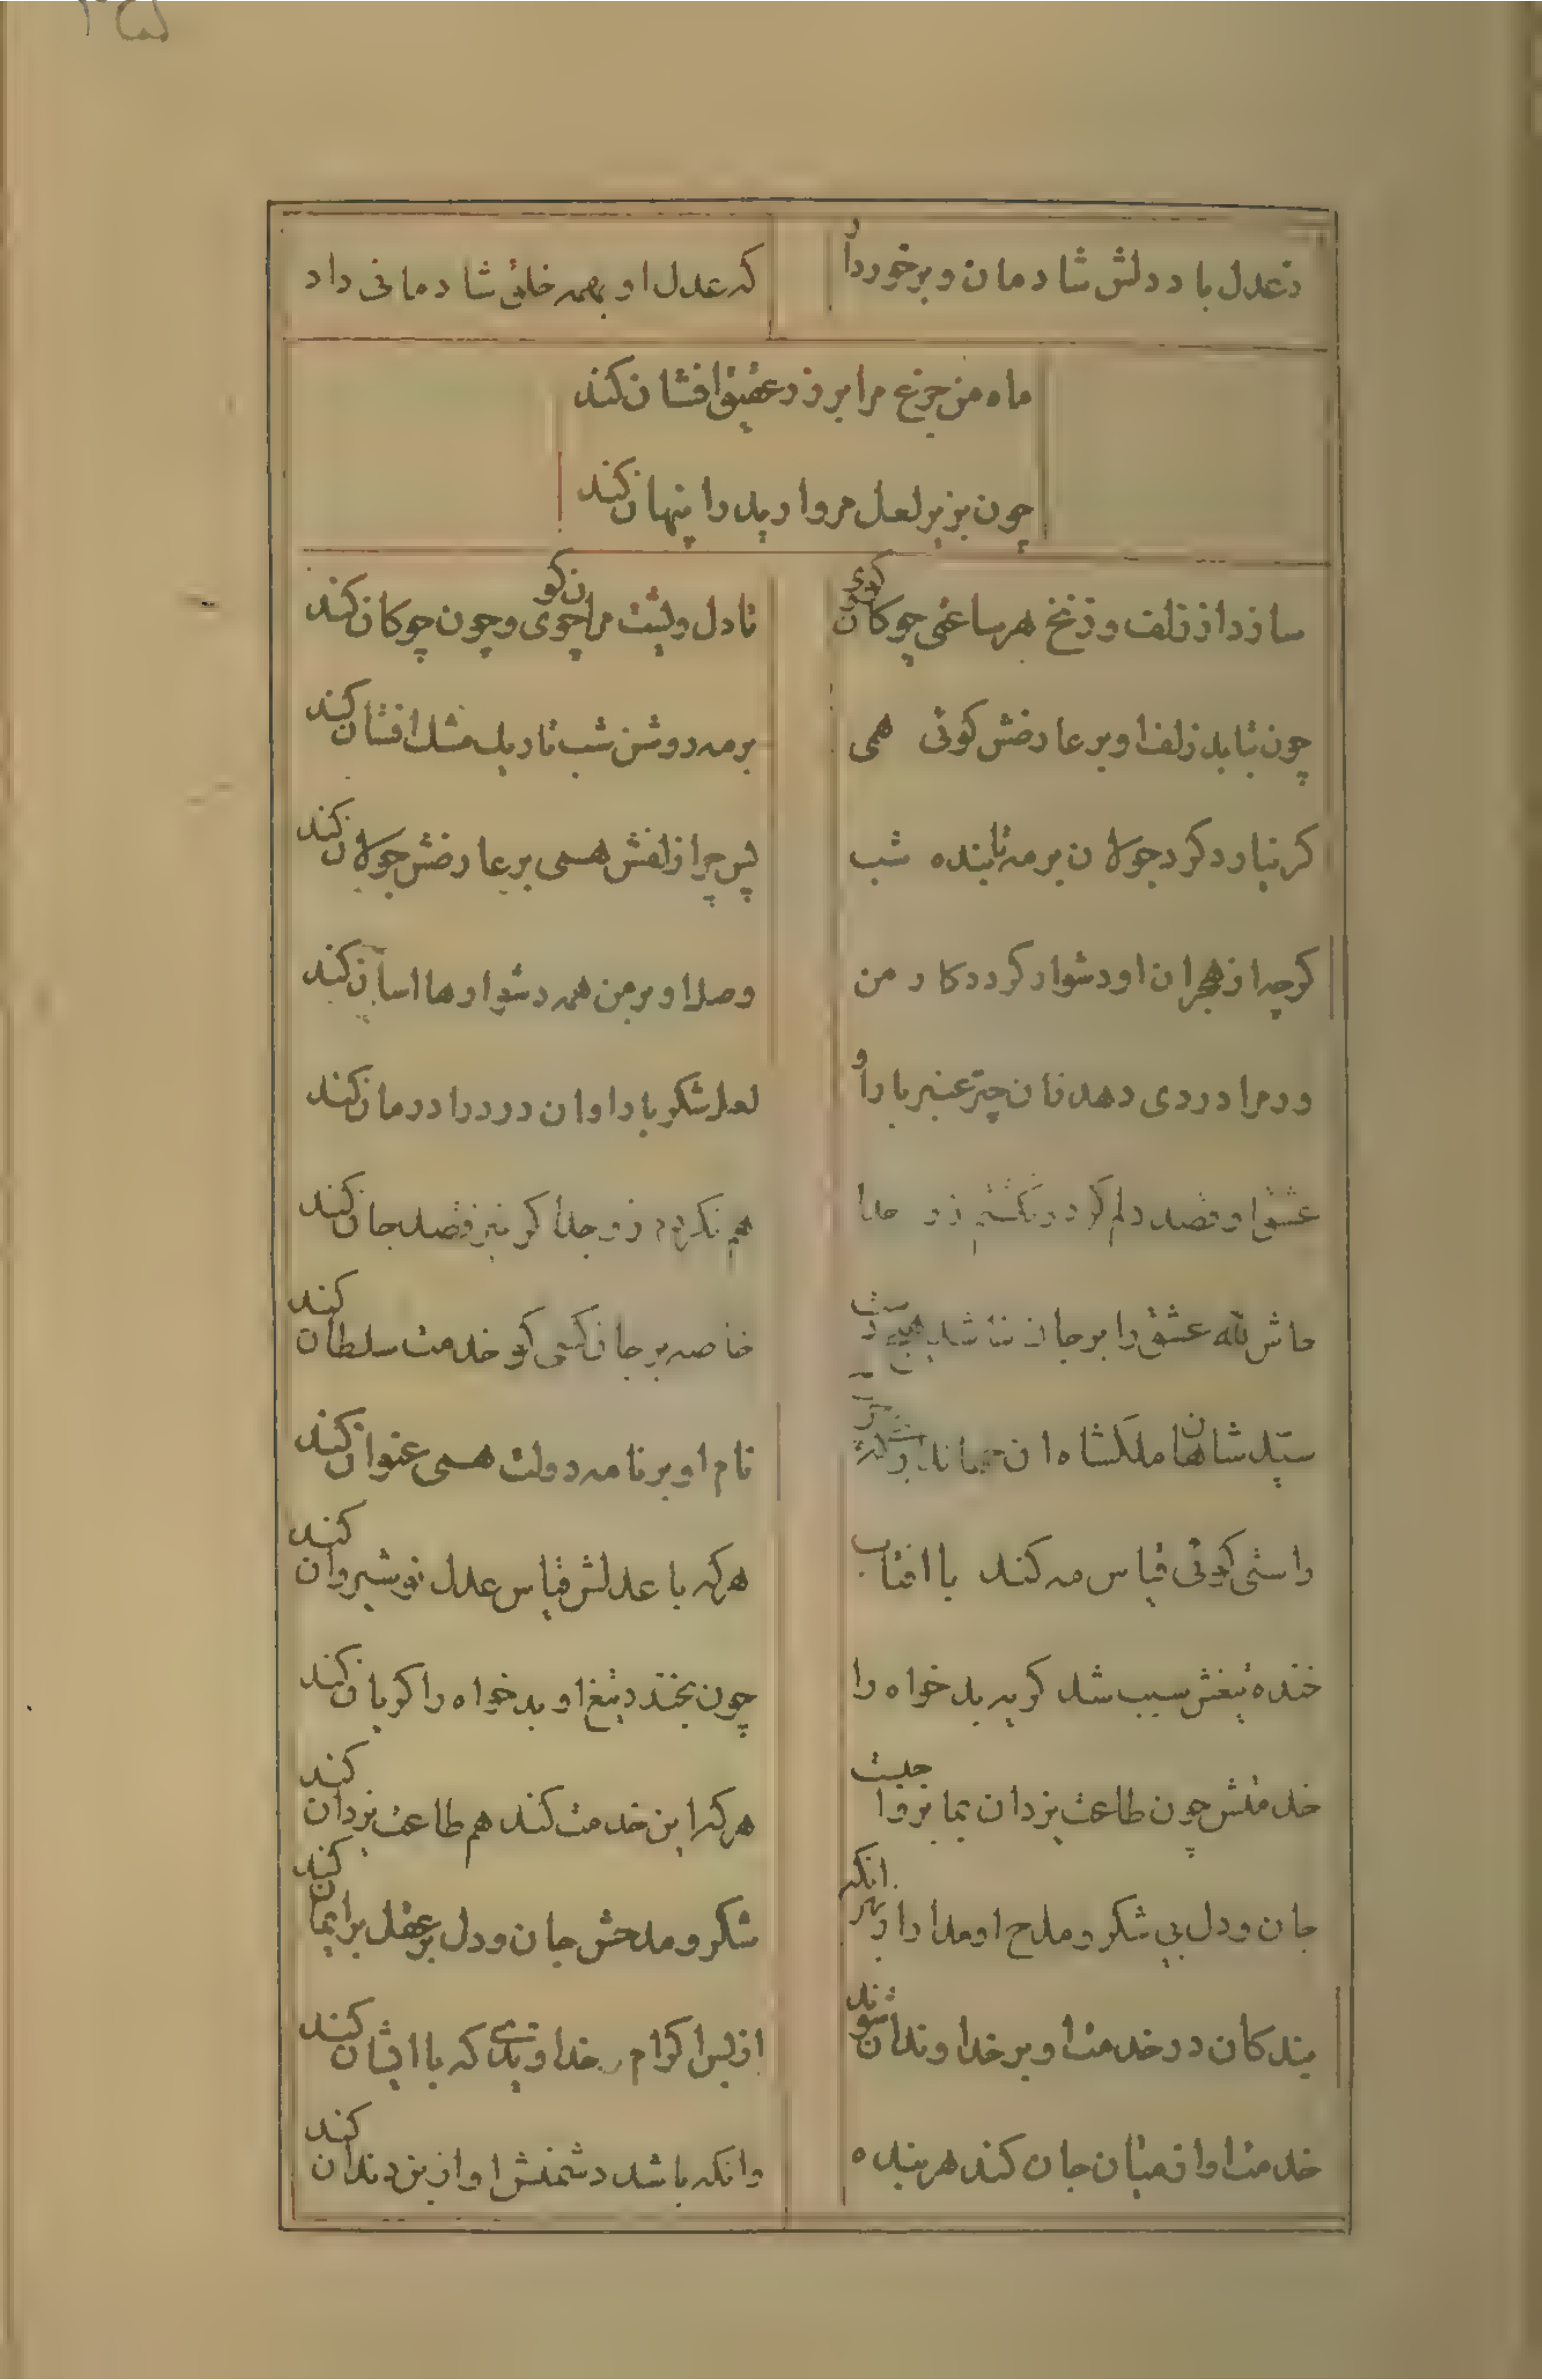 زعدل باد دلش شادمان و برخوردار
که عدل او بهمه خلق شادمانی داد
ماه من جزع مرا بر زر عقیق افشان کند
چون بزیر لعل مروارید را پنهان کند
سازد از زلف و زنخ هر ساعتی چوکان و کوی
تا دل و پشت مرا چون کوی و چون چوکان کند
چون بتابد زلف او بر عارضش کوئی همی
بر مه روشن شب تاریک مشک افشان کند
کر نیارد کرد جولان بر مه تابنده شب
پس چرا زلفش همی بر عارضش جولان کند
کرچه از هجران او دشوار کردد کار من
وصل او بر من همه دشوارها اسان کند
ور مرا دردی دهد نان چتر عنبر بار او
لعل شکر بار او ان درد را درمان کند
عشق او قصد دلم کرد و نکشتم زو جدا
هم نکردم زو جدا کر نیز قصد جان کند
حاش لله عشق را بر جان نباشد هیچ دست
خاصه بر جان کسی کو خدمت سلطان کند
سید شاهان ملکشاه ان
نام او بر نامه دولت همی عنوان کند
راستی کوئی قیاس مه کند با افتاب
هرکه با عدلش قیاس عدل نوشیروان کند
خنده تیغش سبب شد کریه بدخواه را
چون بخندد تیغ او بدخواه را کریان کند
خدمتش چون طاعت یزدان بما بر واجبست
هرکه را این خدمت کند هم طاعت یزدان کند
جان و دل بی شکر و مدح او مدارد بهر انکه
شکر و مدحش جان و دل بر عقل بر ایمان کند
بندکان در خدمت او بر خداوندان شوند
از بس اکرام خداوندی که با ایشان کند
خدمت او از میان جان کند هر بنده
وانکه باشد دشمنش او از بن دندان کند